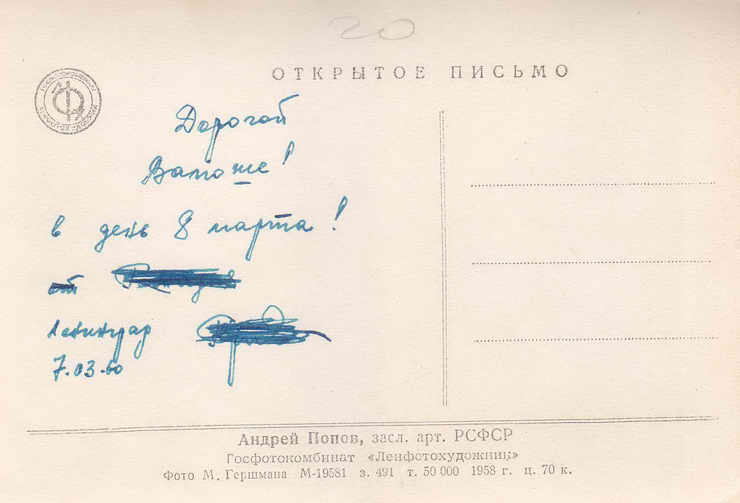 20
ОТКРЫТОЕ ПИСЬМО
Дорогой
Валюше!
в день 8 марта!
от
Ленинград
7.03.60
Андрей Попов, засл. арт. РСФСР
Госфотокомбинат «Ленфотохудожник»
Фото М. Гершмана М-19581 з. 491 т. 50 000 1958 г. ц. 70 к.